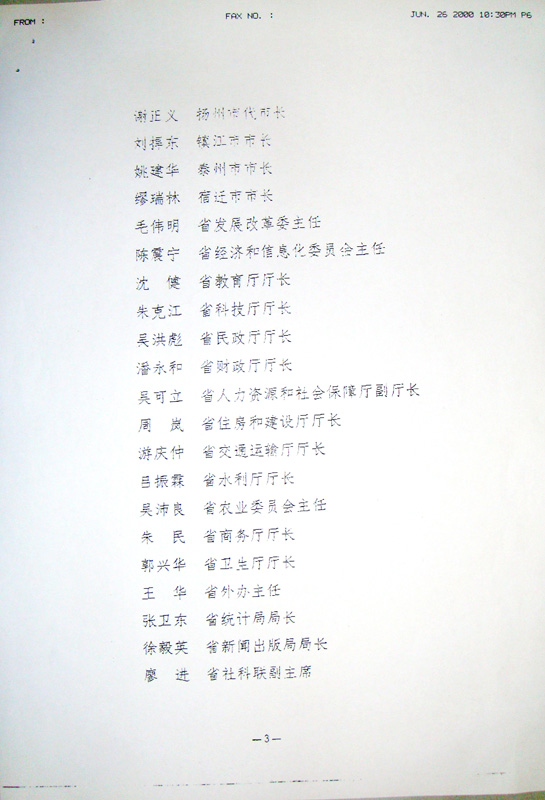 FROM :
FAX NO. :
JUN. 26 2000 10:30PM P6
谢正义 扬州市代市长
刘捍东 镇江市市长
姚建华 泰州市市长
缪瑞林 宿迁市市长
毛伟明 省发展改革委主任
陈震宁 省经济和信息化委员会主任
沈 健 省教育厅厅长
朱克江 省科技厅厅长
吴洪彪 省民政厅厅长
潘永和 省财政厅厅长
吴可立 省人力资源和社会保障厅副厅长
周 岚 省住房和建设厅厅长
游庆仲 省交通运输厅厅长
吕振霖 省水利厅厅长
吴沛良 省农业委员会主任
朱 民 省商务厅厅长
郭兴华 省卫生厅厅长
王 华 省外办主任
张卫东 省统计局局长
徐毅英 省新闻出版局局长
廖 进 省社科联副主席
—3—